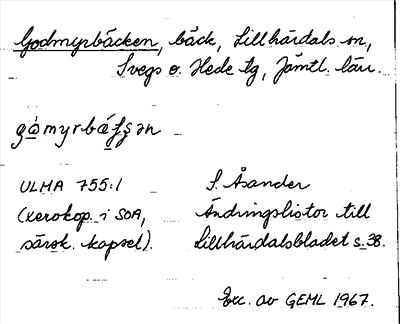 Godmyrbäcken, bäck, Lillhärdals sn,
Svegs o. Hede tg, Jämtl. län.
ULMA 755:1
(xerokop. i SOA,
särsk. kapsel).
S. Åsander
Ändringslistor till
Lillhärdalsbladet s. 38.
Exc. av GEML 1967.